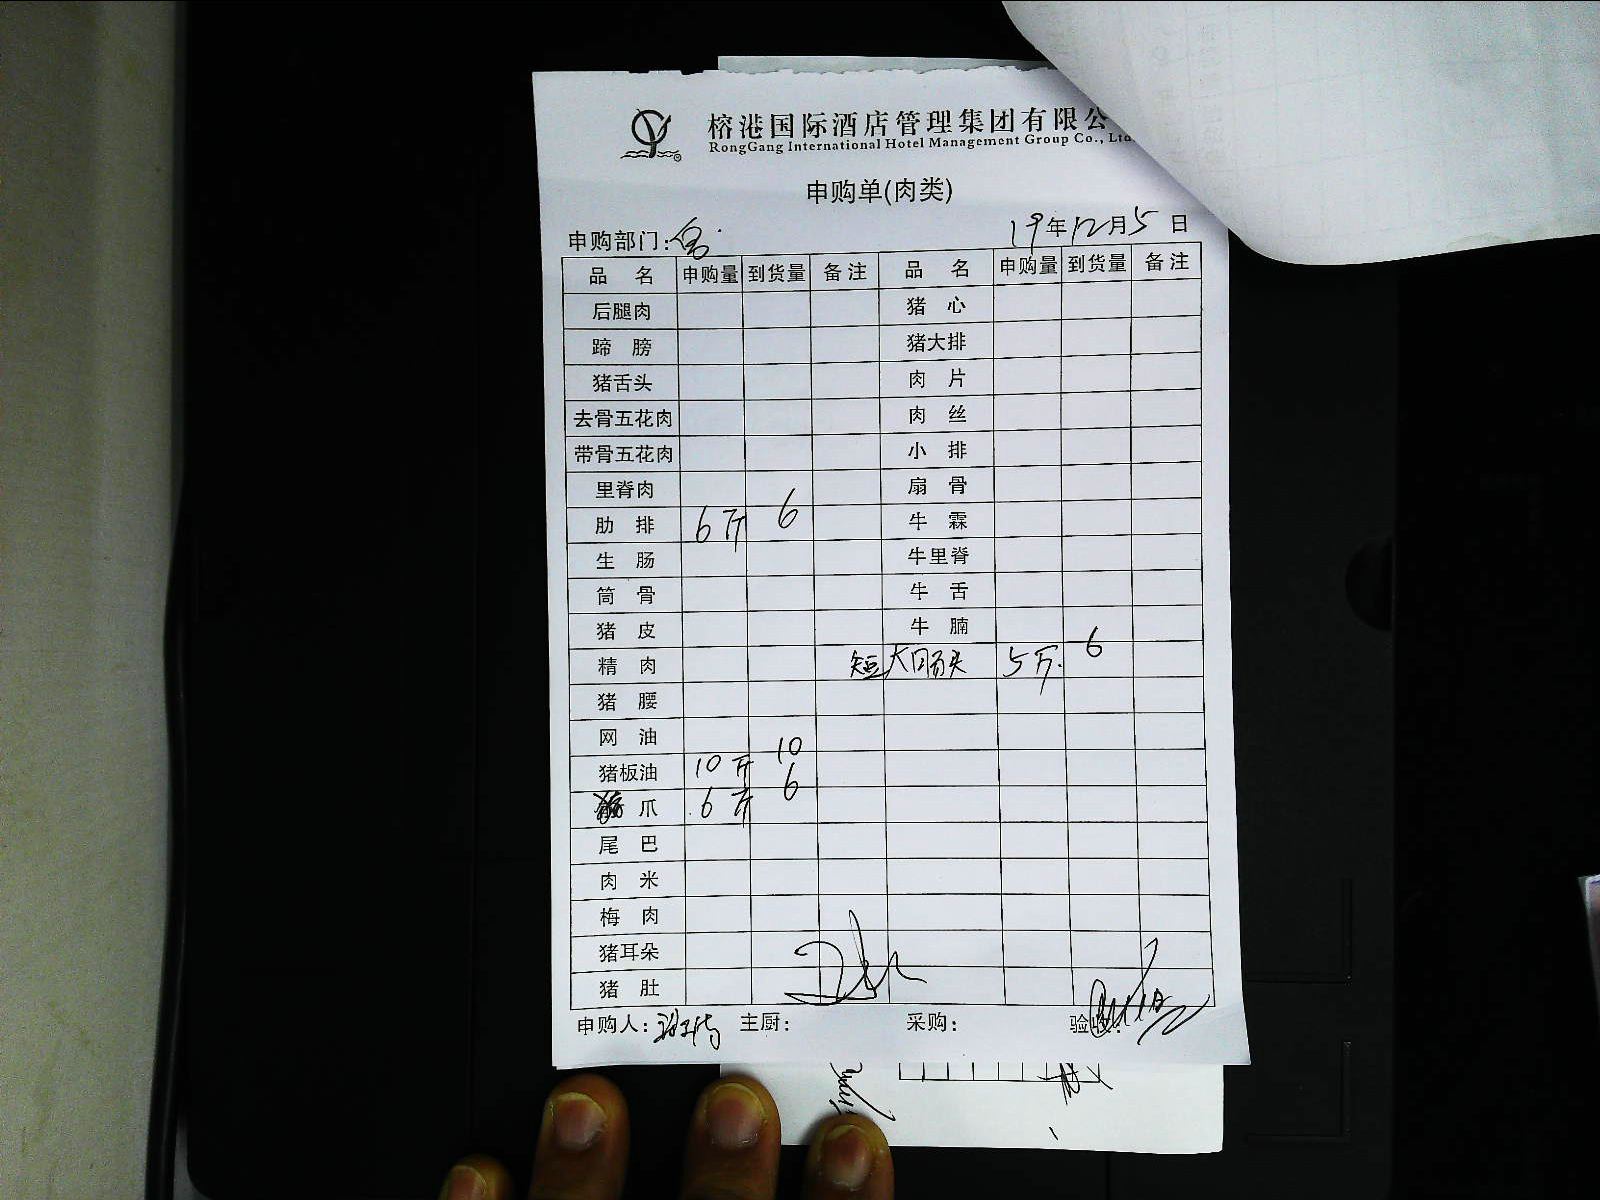 榕港国际酒店管理集团有限公
RongGang International Hotel Management Group Co., Ltd
申购单(肉类)
申购部门: 19年12月5日
品名 申购量 到货量 备注 品名 申购量 到货量 备注
后腿肉 猪心
蹄膀 猪大排
猪舌头 肉片
去骨五花肉 肉丝
带骨五花肉 小排
里脊肉 扇骨
肋排 6斤 6 牛霖
生肠 牛里脊
筒骨 牛舌
猪皮 牛腩
精肉 短大肠头 5斤. 6
猪腰
网油
猪板油 10斤 10
爪 6斤 6
尾巴
肉米
梅肉
猪耳朵
猪肚
申购人: 主厨: 采购: 验收: